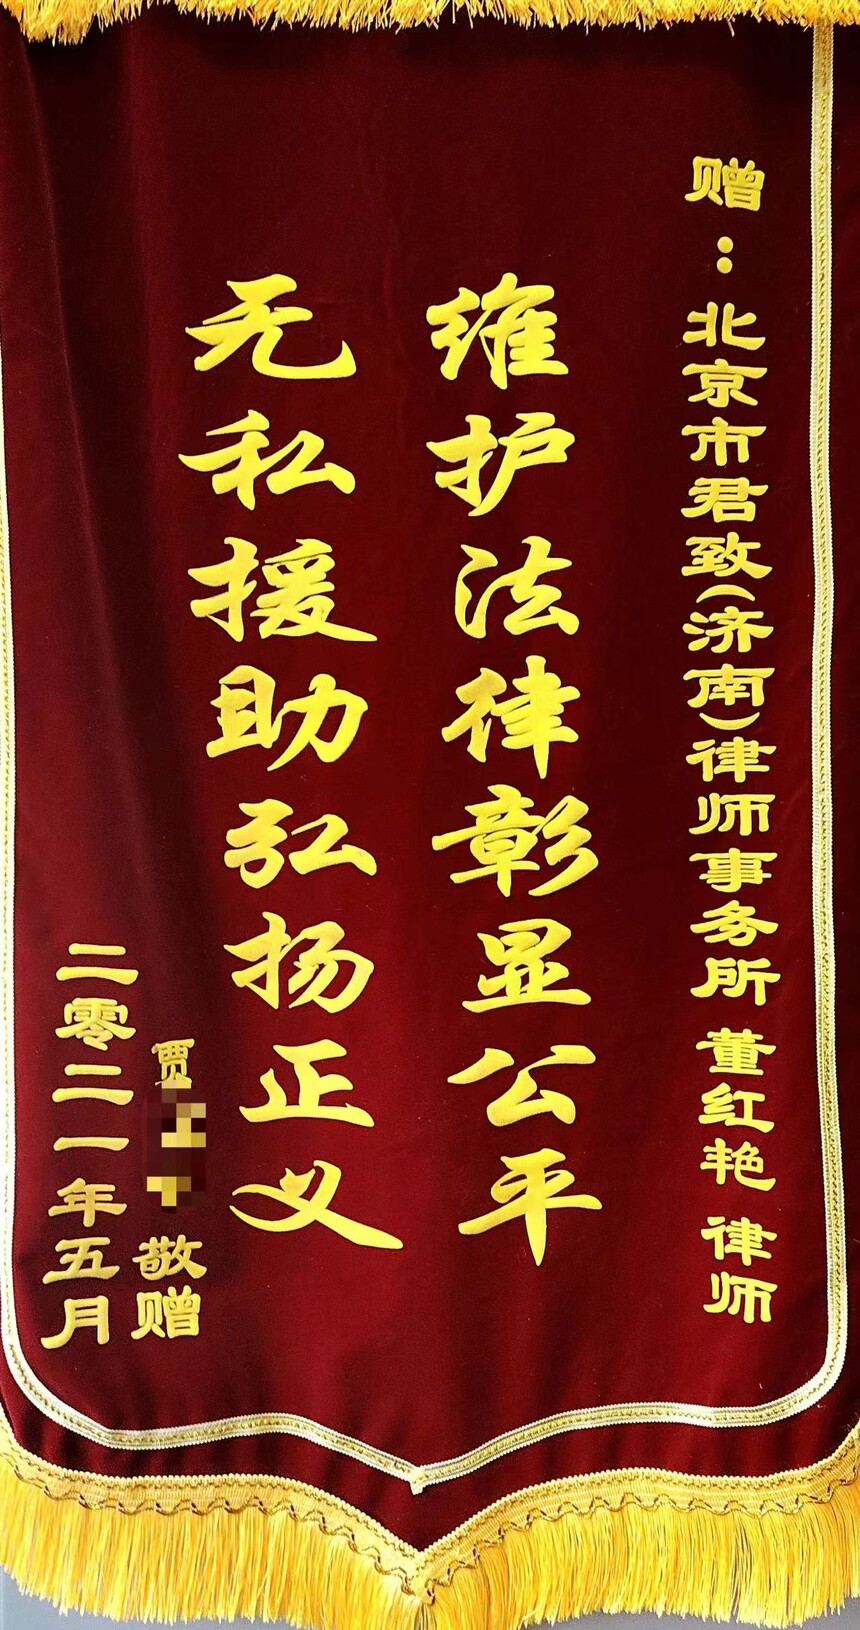 赠：北京市君致(济南)律师事务所 董红艳 律师
维护法律彰显公平
无私援助弘扬正义
贾 敬赠
二零二一年五月